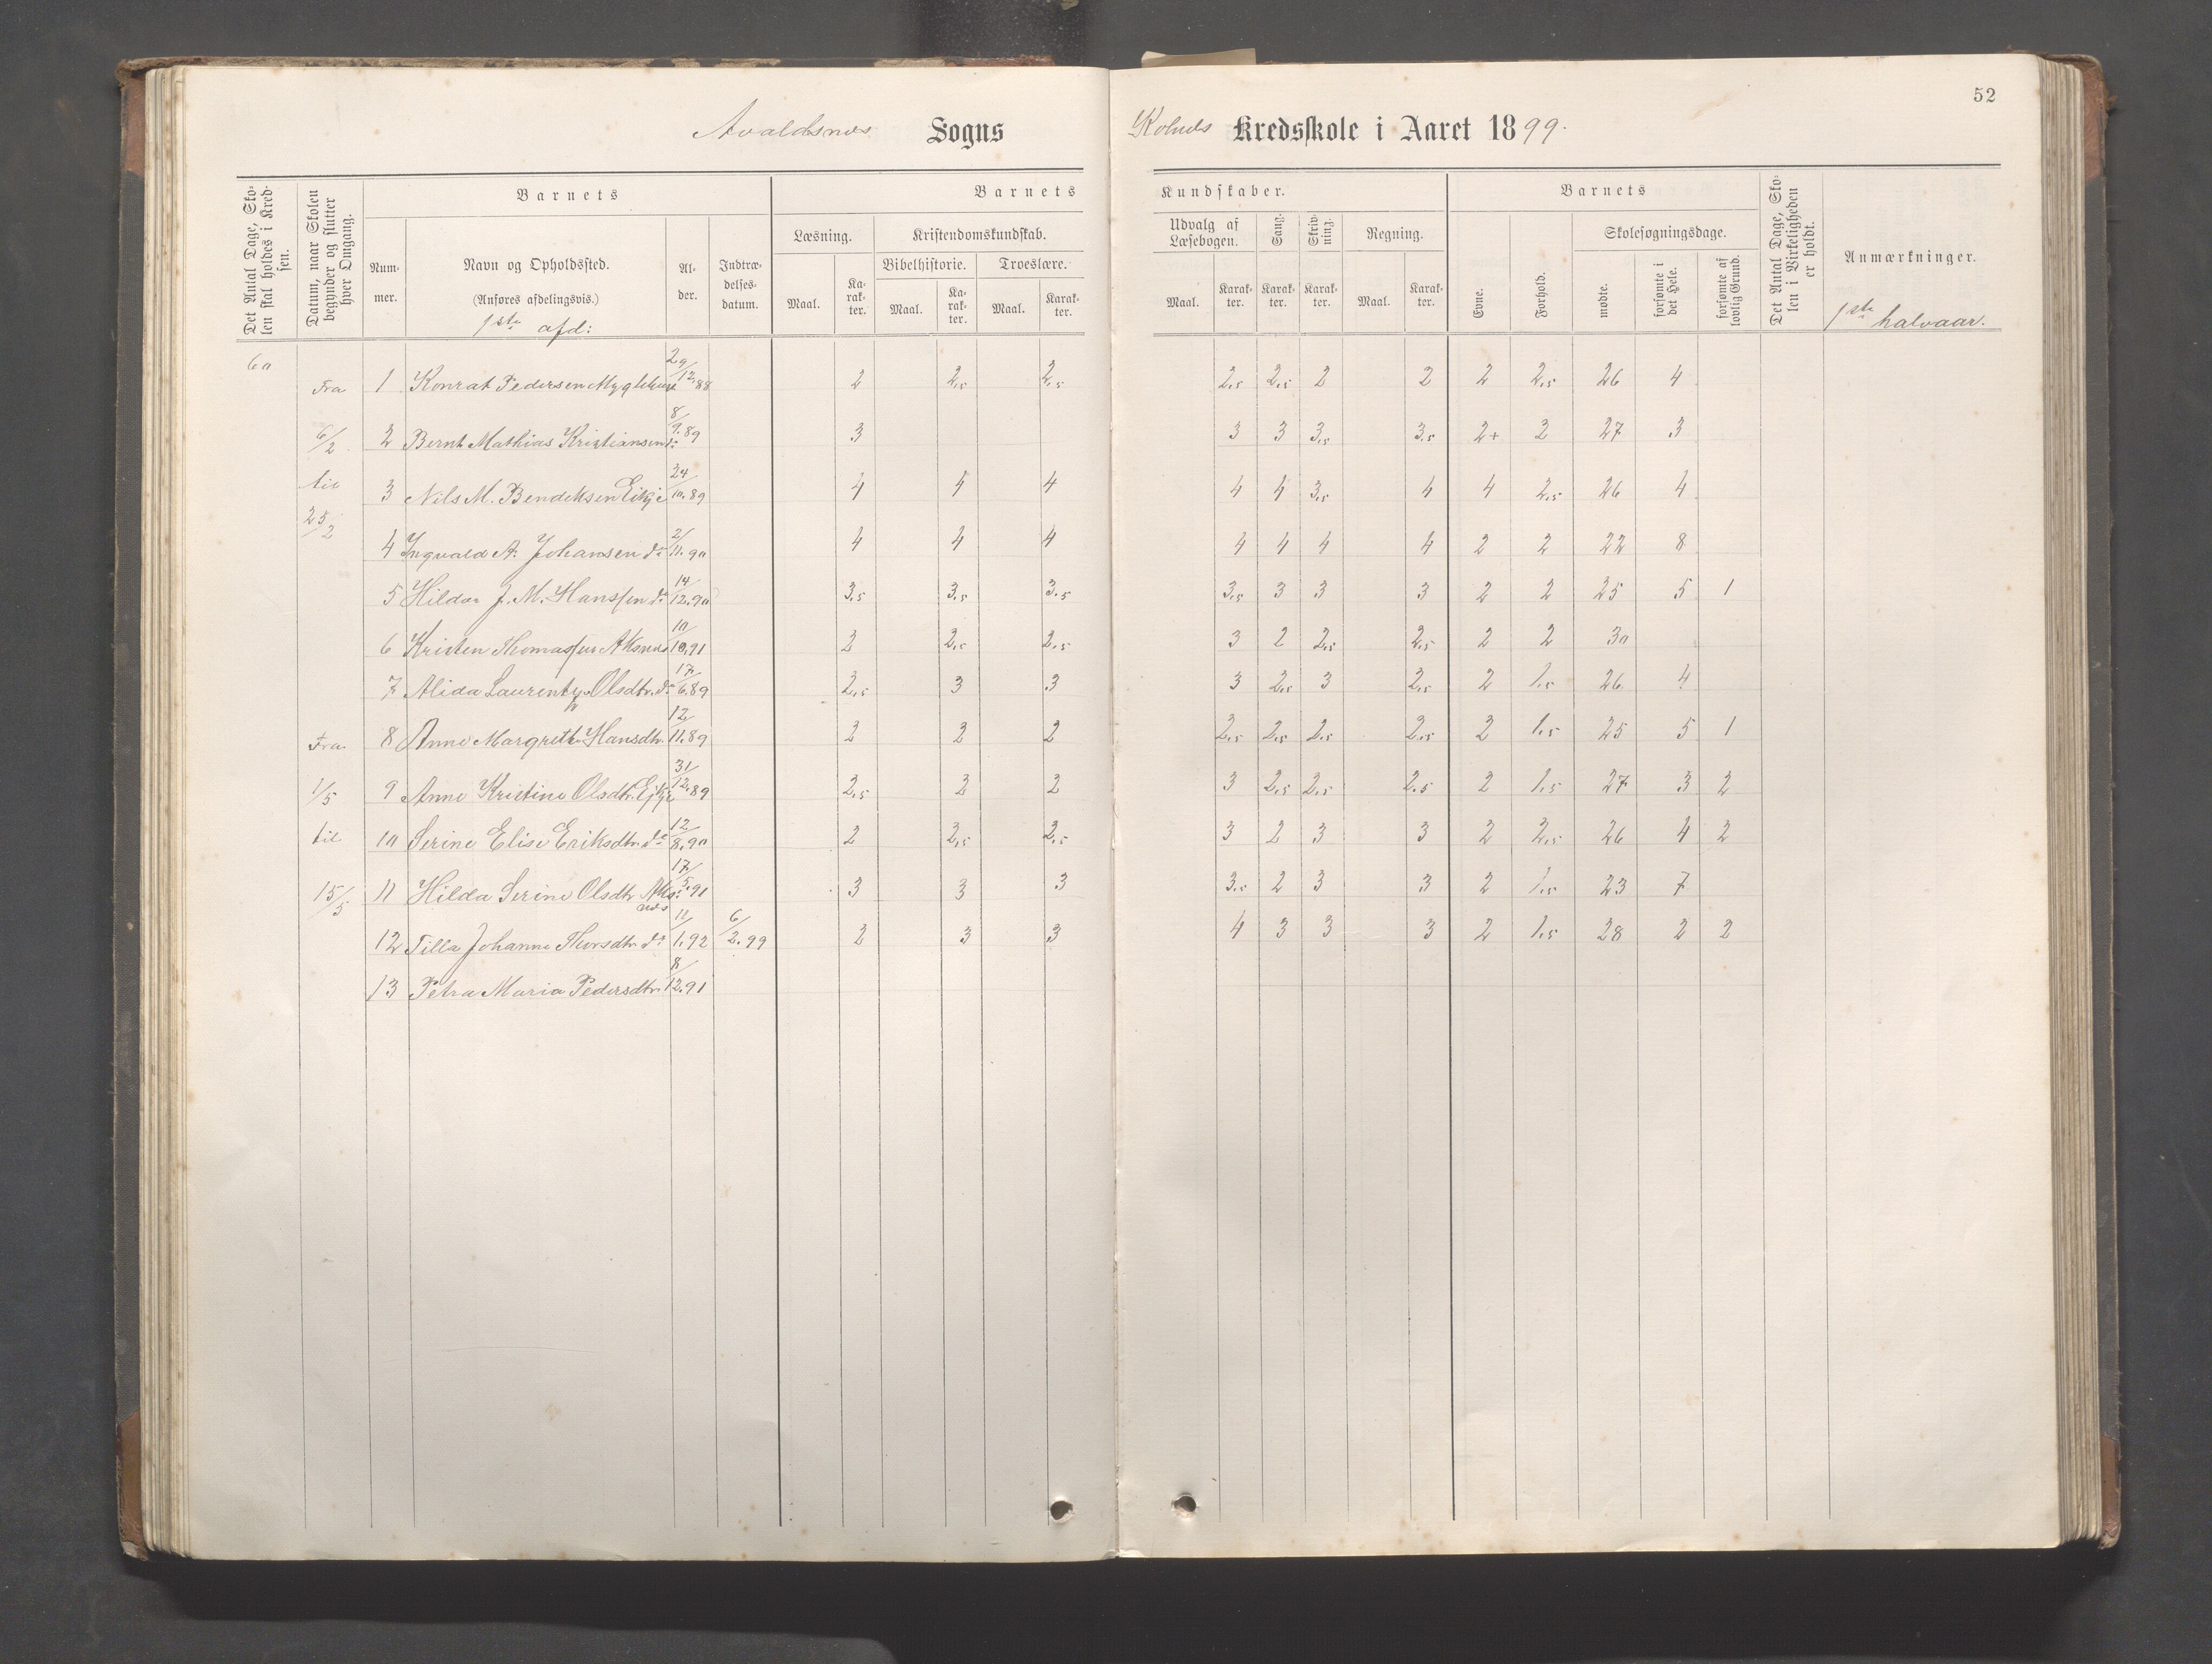 52
Avaldsnes Sogns Kolnes Kredsskole i Aaret 1899.
Det Antal Dage, Skolen skal holdes i Kredsen.
Datum, naar Skolen begynder og slutter hver Omgang.
Barnets
Nummer.
Navn og Opholdssted.
(Anføres afdelingsvis.)
1ste afd:
Alder.
Indtrædelsesdatum.
Barnets Kundskaber.
Læsning.
Maal. Karakter.
Kristendomskundskab.
Bibelhistorie. Troeslære.
Maal. Karakter. Maal. Karakter.
Udvalg af Læsebogen.
Maal. Karakter.
Sang. Karakter.
Skrivning. Karakter.
Regning.
Maal. Karakter.
Barnets
Evne.
Forhold.
Skolesøgningsdage.
mødte.
forsømte i det Hele.
forsømte af lovlig Grund.
Det Antal Dage, Skolen i Virkeligheden er holdt.
Anmærkninger.
1ste halvaar.
60
Fra 1 Konrat Pedersen 29/12.88 2 2,5 2,5 2,5 2,5 2 2 2 2,5 26 4
6/2 2 Bernt Mathias Kristiansen do 8/9.89 3 3 3 3,5 3,5 2+ 2 27 3
til 3 Nils M. Bendiksen Eikje 24/10.89 4 4 4 4 4 3,5 4 4 2,5 26 4
25/2
4 Ingvald A. Johansen do 2/11.90 4 4 4 4 4 4 4 2 2 22 8
5 Hilda J. M. Hanssen do 14/12.90 3,5 3,5 3,5 3,5 3 3 3 2 2 25 5 1
6 Kristen Thomassen Aksnes 10/10.91 2 2,5 2,5 3 2 2,5 2,5 2 2 30
7 Alida Laurentze Olsdtr. do 17/6.89 2,5 3 3 3 2,5 3 2,5 2 1,5 26 4
Fra 8 Anne Margrethe Hansdtr. 12/11.89 2 2 2 2,5 2,5 2,5 2,5 2 1,5 25 5 1
1/5 9 Anne Kristine Olsdtr. Ejkje 31/12.89 2,5 2 2 3 2,5 2,5 2,5 2 1,5 27 3 2
til 10 Serine Elise Eriksdtr. do 12/8.90 2 2,5 2,5 3 2 3 3 2 2,5 26 4 2
15/5 11 Hilda Serine Olsdtr Aksnes 17/5.91 3 3 3 3,5 2 3 3 2 1,5 23 7
12 Tilla Johanne Thorsdtr. do 11/1.92 6/2.99 2 3 3 4 3 3 3 2 1,5 28 2 2
13 Petra Maria Pedersdtr. 8/12.91